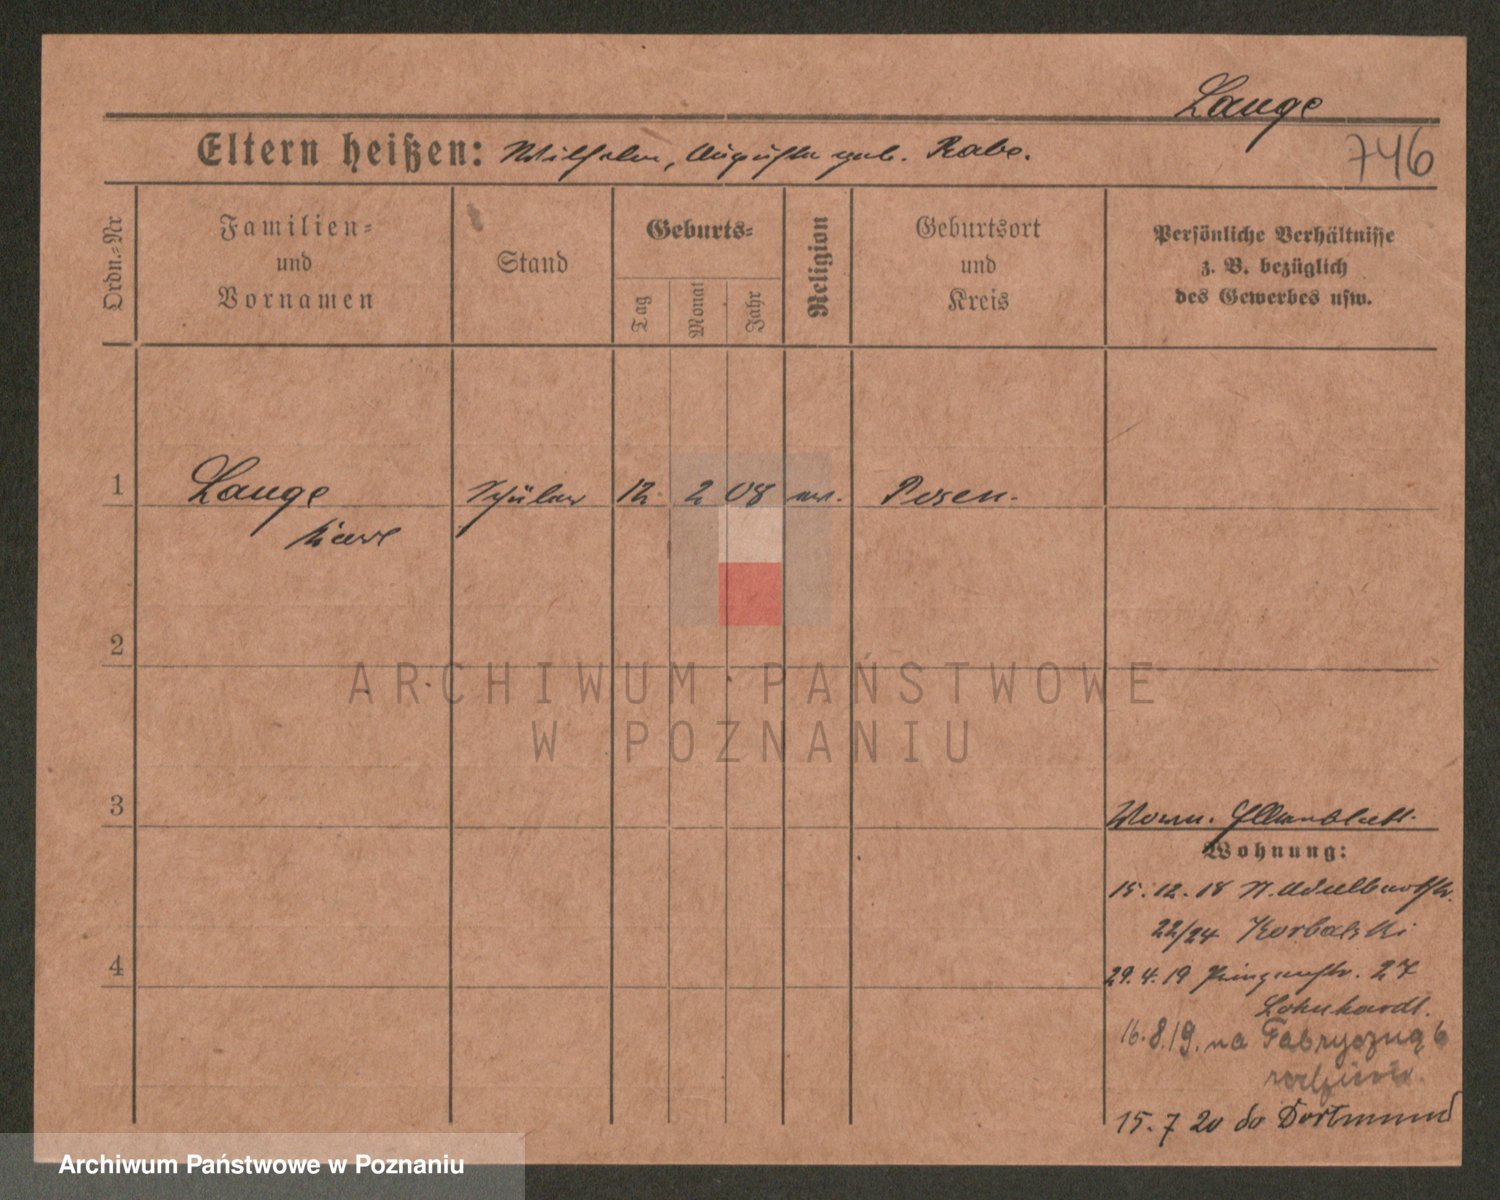 Lange
746
Eltern heißen: Wilhelm, Auguste geb. Rabe.
Ordn.=Nr
Familien=
und
Vornamen
Stand
Geburts=
Tag
Monat
Jahr
Religion
Geburtsort
und
Kreis
Persönliche Verhältnisse
z. B. bezüglich
des Gewerbes usw.
1
Lange
Schüler
12.
2
08
ev.
Posen.
2
3
4
Wohnung:
15.12.18
22/24
29.4.19 Prinzenstr. 27
16.8.19. na Fabryczną 6
15.7 20 do Dortmund
ARCHIWUM PAŃSTWOWE
W POZNANIU
Archiwum Państwowe w Poznaniu